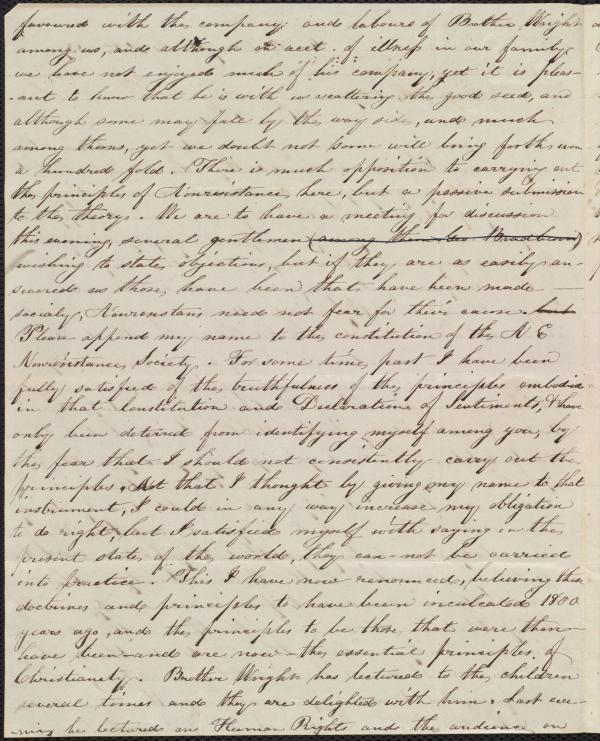 favoured with the company and labours of Brother Wright
among us, and although on acct. of illness in our family
we have not enjoyed much of his company, yet it is pleas-
-ant to know that he is with us scattering the good seed, and
although some may fall by the way side, and much
among thorns, yet we doubt not some will bring forth even
a hundred fold. There is much opposition to carrying out
the principles of Nonresistance here, but a passive submission
to the theory. We are to have a meeting for discussion
this evening, several gentlemen (among them Geo Bradburn)
wishing to state objections, but if they are as easily an-
swered as those have been that have been made
socially, Nonresistans need not fear for their cause. but
Please append my name to the constitution of the N E
Nonresistance Society. For some time past I have been
fully satisfied of the truthfulness of the principles embodied
in that Constitution and Declaration of Sentiments, & have
only been deterred from identifying myself among you, by
the fear that I should not consistently carry out the
principles. Not that I thought by giving my name to that
instrument, I could in any way increase my obligation
to do right, but I satisfied myself with saying in the
present state of the world, they can not be carried
into practice. This I have now renounced, believing these
doctrines and principles to have been inculcated 1800
years ago, and the principles to be those that were then
have been—and are now—the essential principles of
Christianity. Brother Wright has lectured to the children
several times and they are delighted with him. Last eve-
ning he lectured on Human Rights and the audience on